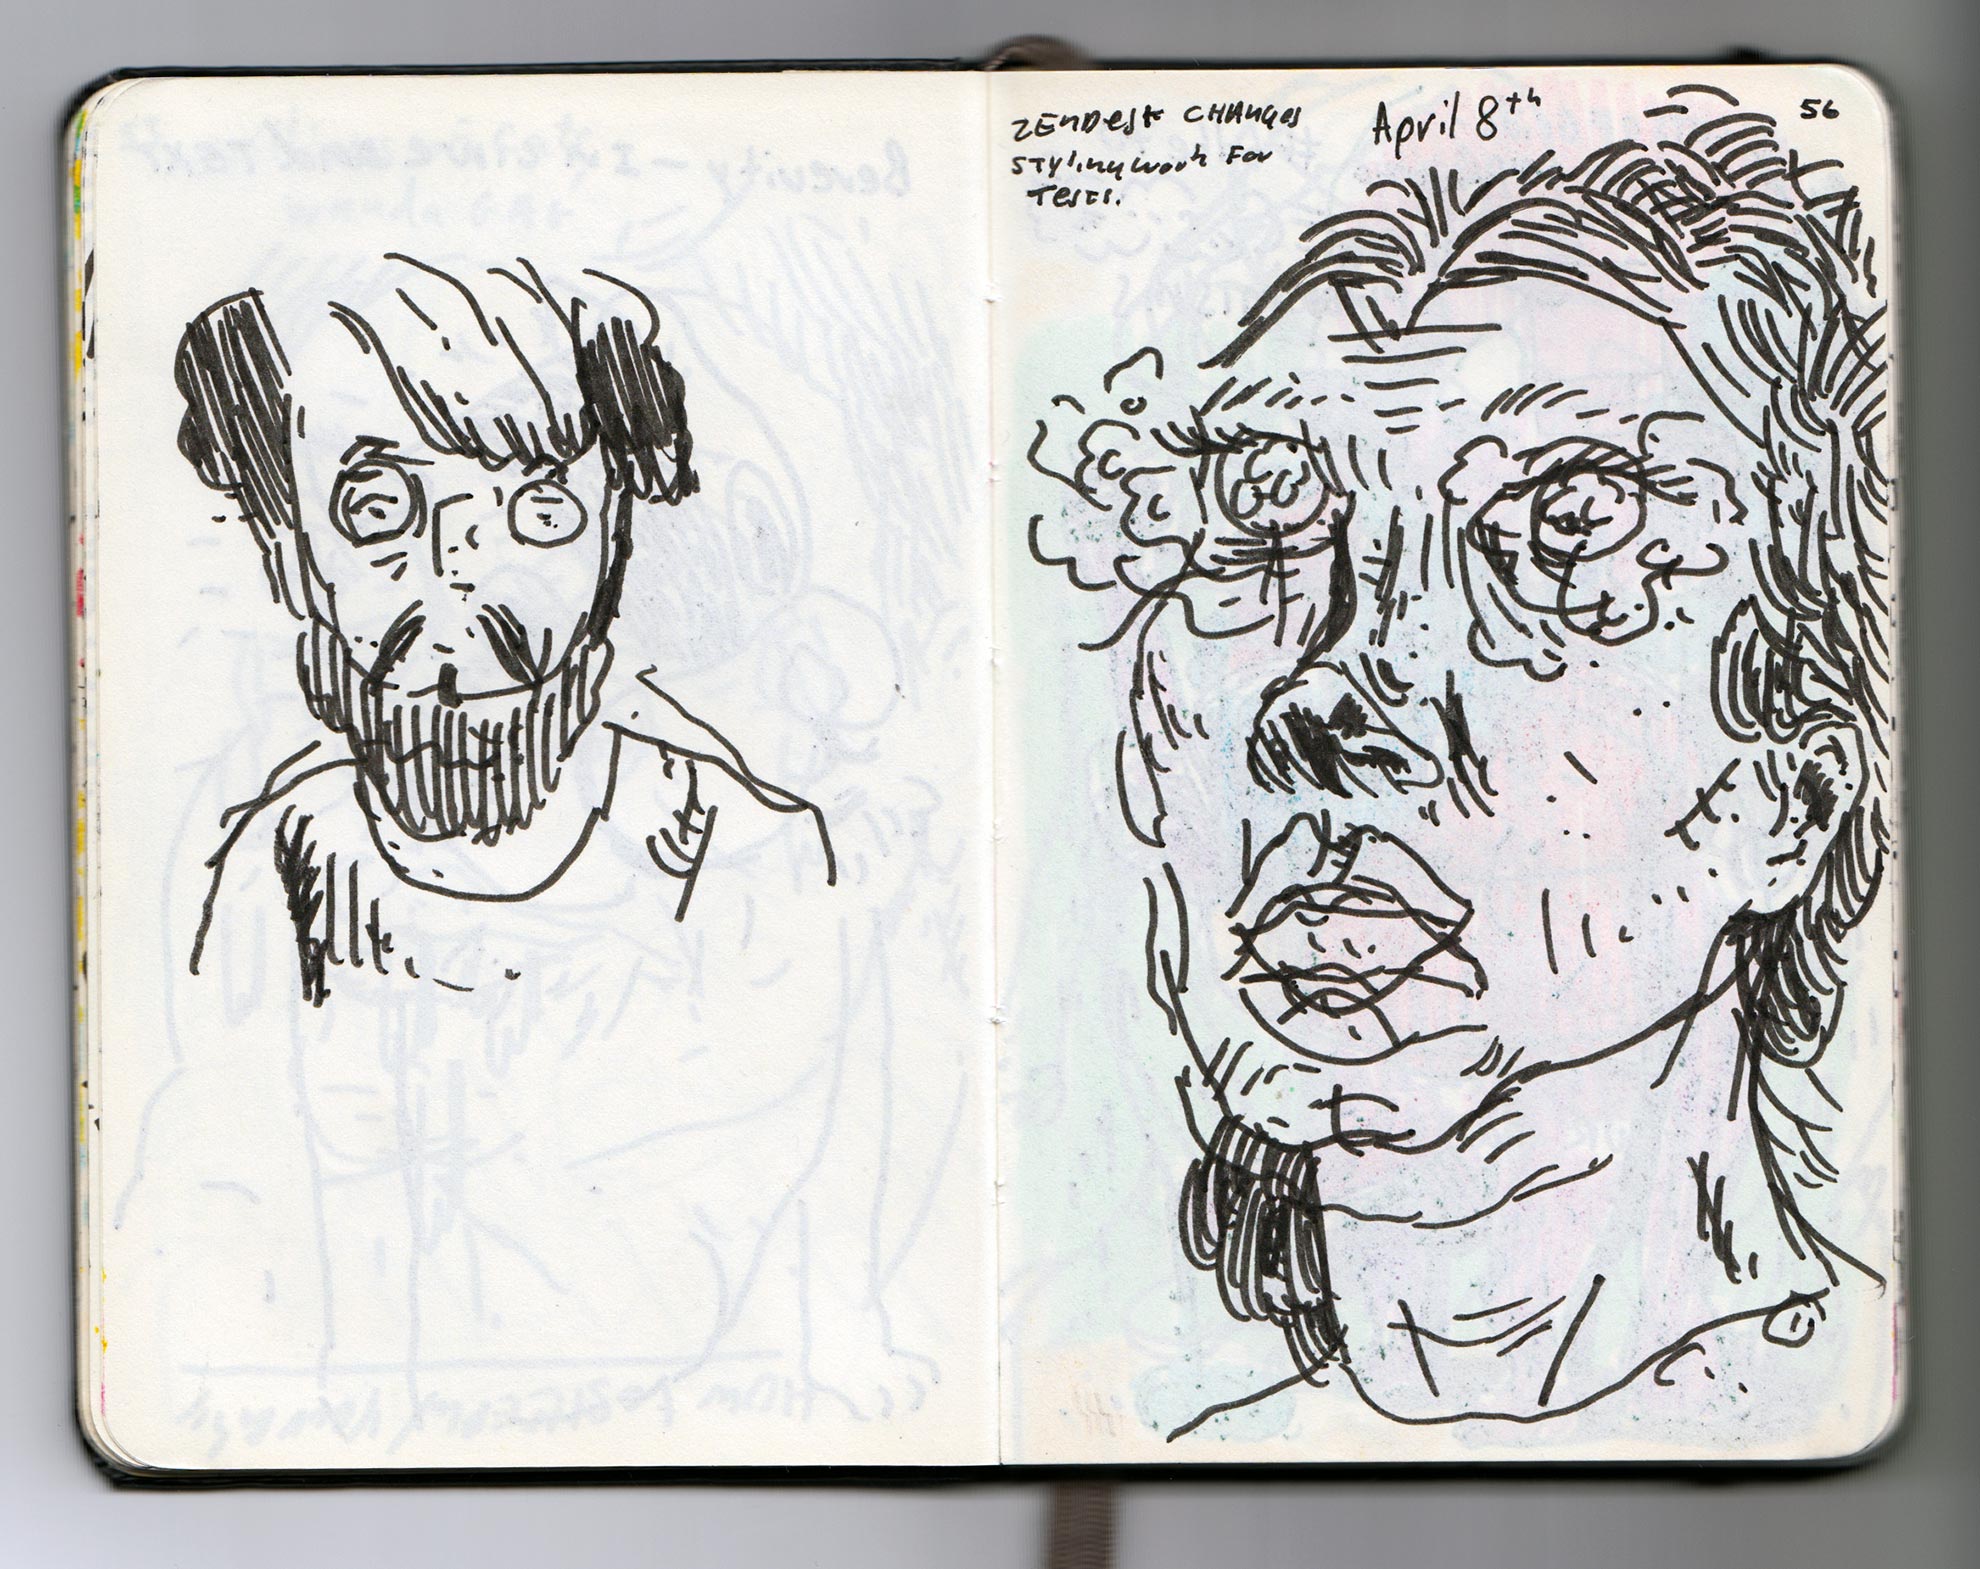 ZENDESK CHANGES
STYLING WORK FOR
TESTS.
April 8th
56